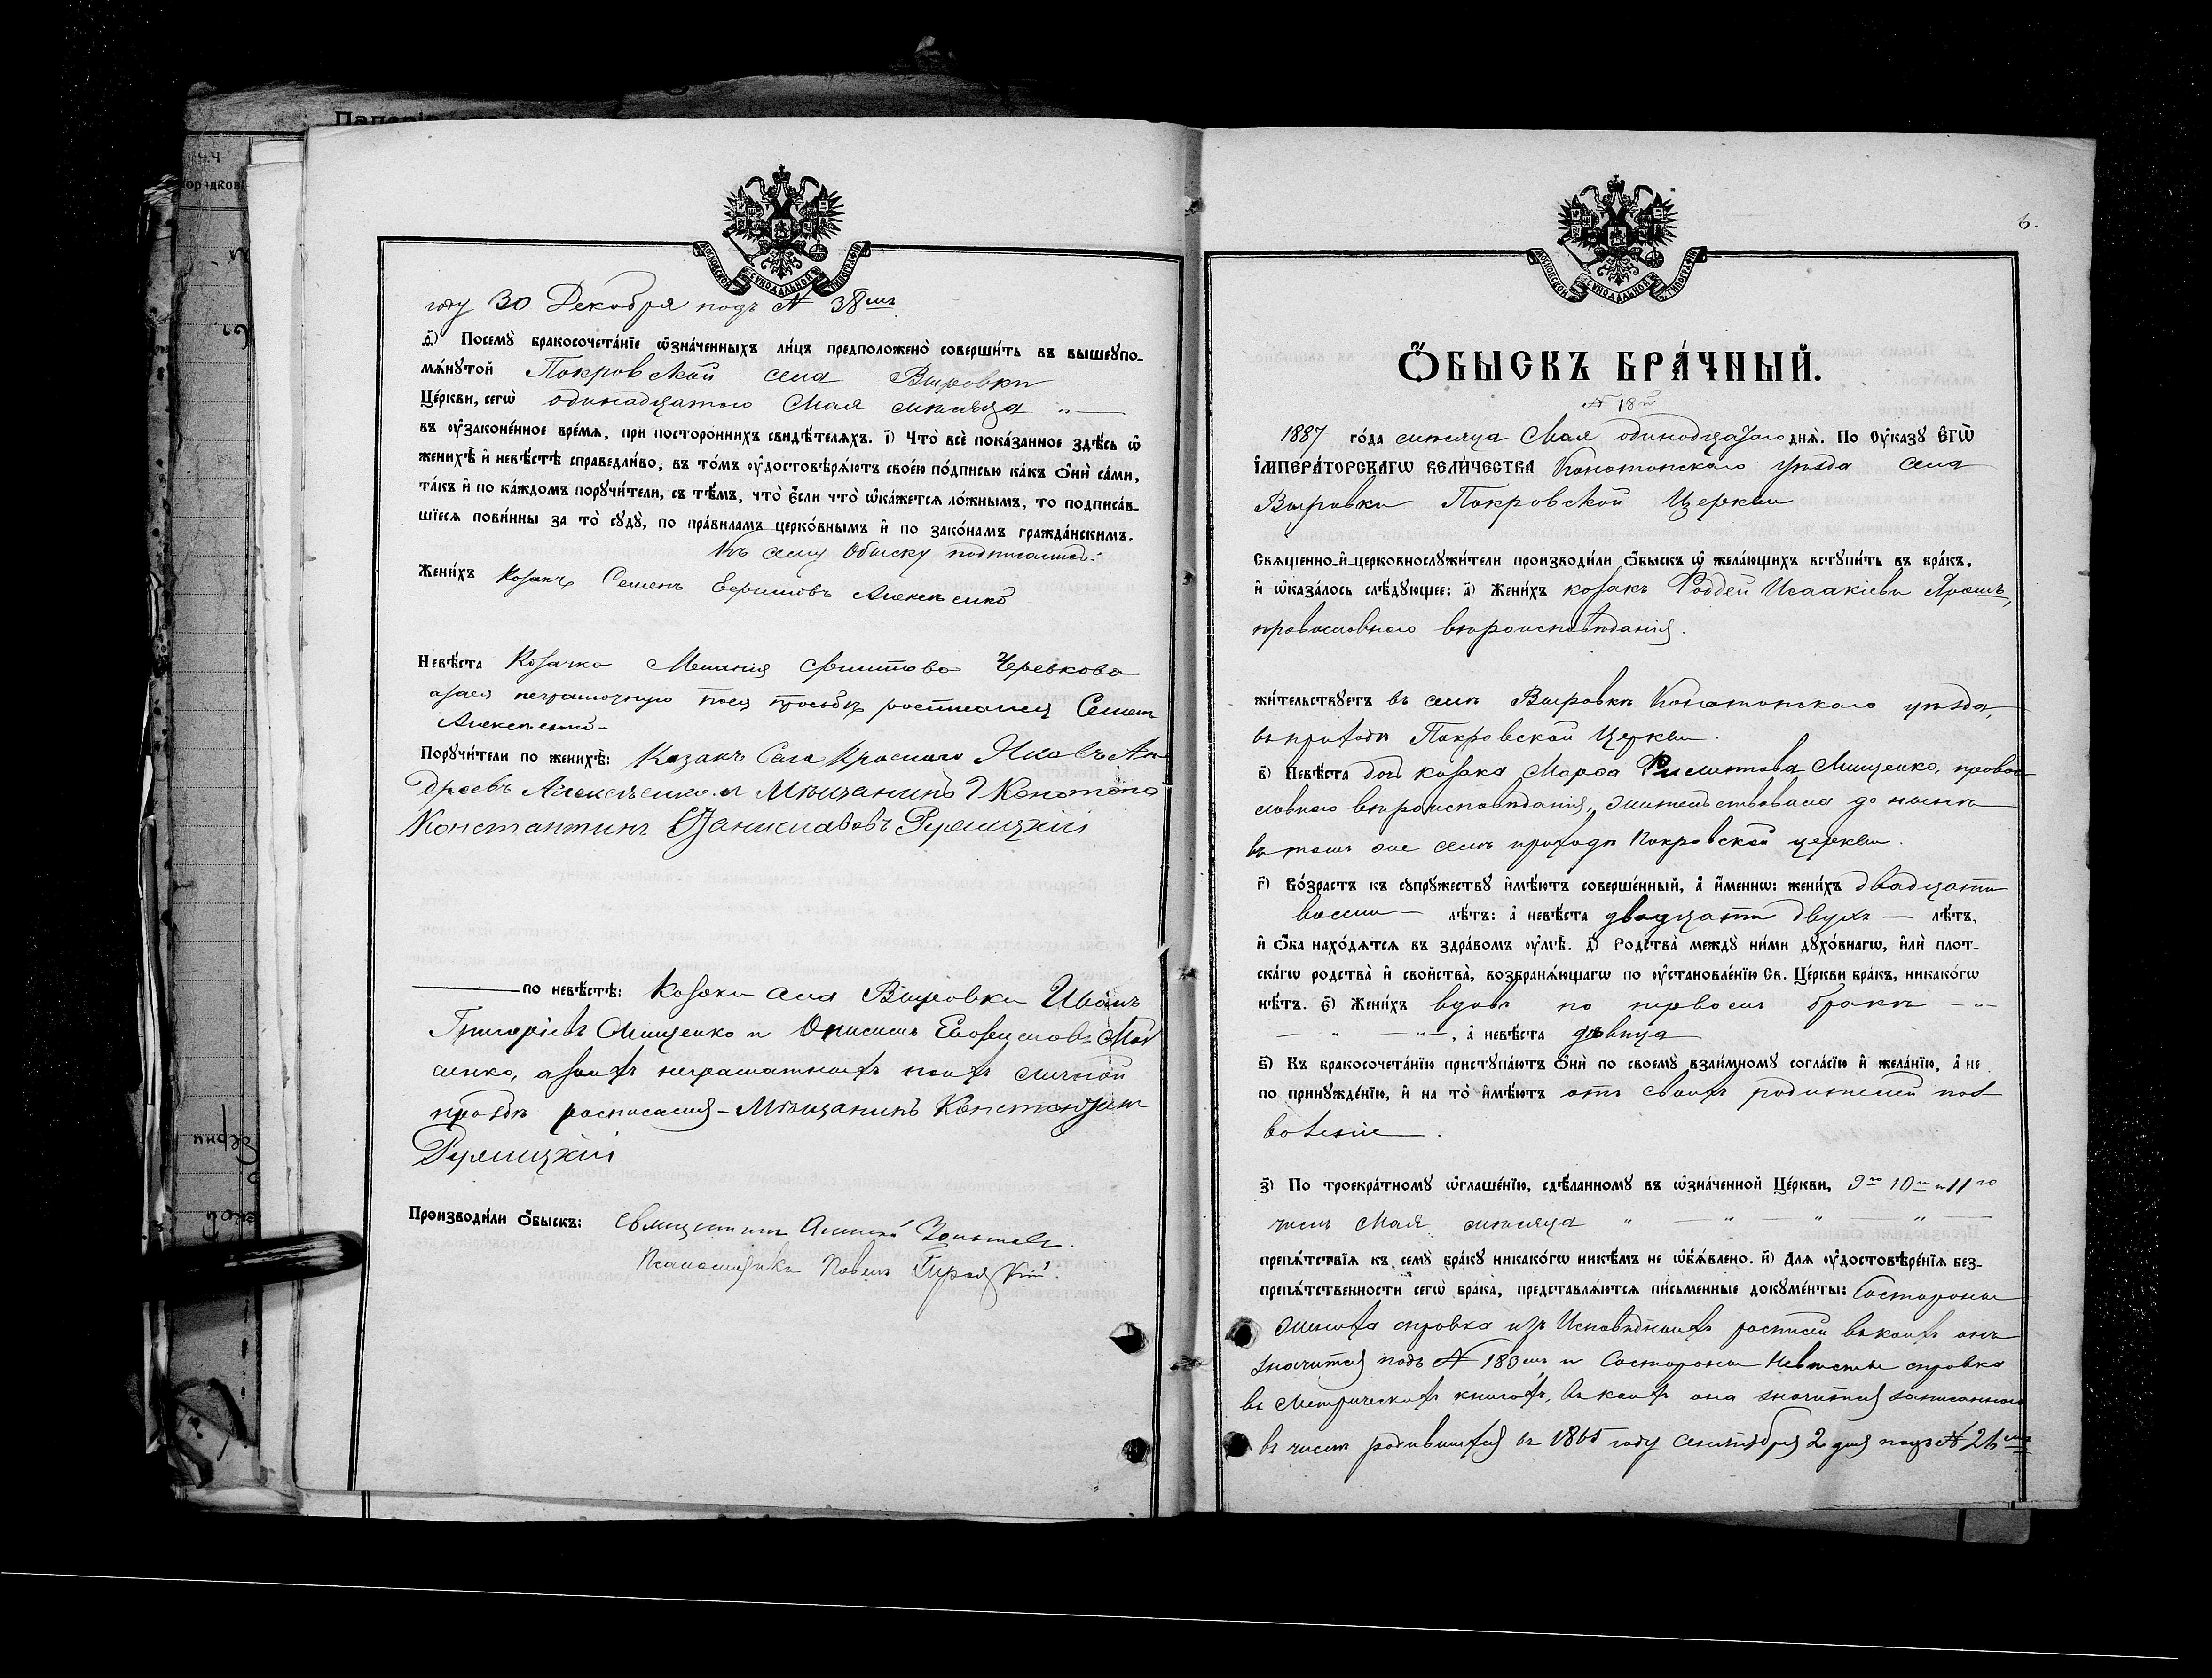 году 30 Декабря подъ № 38мъ
д҃і) Посемꙋ̀ бракосочета́нїе ѡ҆зна́ченныхъ ли́цъ предположено̀ соверши́ть въ вышеꙋпо-
мѧ́нꙋтой Покровской села Вировки
Це́ркви, сегѡ̀ одинадцатого Мая месяца „ —
въ ᲂу҆законе́нное вре́мѧ, при посторо́ннихъ свидѣ́телѧхъ. і҃) Что̀ всѐ пока́занное здѣ́сь ѡ҆
женихѣ̀ и҆ невѣ́стѣ справедли́во, въ то́мъ ᲂу҆достовѣрѧ́ютъ свое́ю по́дписью ка́къ ѻ҆нѝ са́ми,
та́къ и҆ по ка́ждомъ порꙋчи́тели, съ тѣ́мъ, что̀ є҆́сли что̀ ѡ҆ка́жетсѧ ло́жнымъ, то подписа́в-
шїесѧ пови́нны за то̀ сꙋдꙋ̀, по пра́виламъ церко́внымъ и҆ по зако́намъ гражда́нскимъ.
Къ сему Обыску подписались:
Жени́хъ Козакъ Семенъ Ефимовъ Алексѣенко
Невѣ́ста Козачка Мелания Филитова Черевкова
а за ея неграмотную по ея просьбѣ росписался Семенъ
Алексѣенко
Порꙋчи́тели по женихѣ̀: Казакъ Села Красного Яковъ Ан
дреевъ Алексѣенко и Мѣщанинъ Г Конотопа
Константинъ Станиславовъ Румицкій
по невѣ́стѣ: Козаки села Вировки Иванъ
Григоріевъ Мищенко и Онисимъ
сенко, а за ихъ неграмотныхъ по ихъ личной
прозбѣ росписался - Мѣщанинъ Константинъ
Румицкій
Производи́ли ѻ҆́быскъ: Священникъ Алексѣй
Псаломщикъ Павелъ
6.
Ѻ҆́БЫСКЪ БРА́ЧНЫЙ.
№ 18й
1887 го́да месяца Мая одинодцатаго днѧ̀. По Оу҆ка́зꙋ Є҆гѡ̀
И҆мпера́торскагѡ Вели́чества Конотопского уѣзда села
Вировки Покровской Церкви
Свѧще́нно-и҆-церковнослꙋжи́тели производи́ли ѻ҆́быскъ ѡ҆ жела́ющихъ встꙋпи́ть въ бра́къ,
и҆ ѡ҆каза́лось слѣ́дꙋющее: а҃) Жени́хъ козакъ Фаддей Исаакіевъ Ярошъ,
православного вѣроисповѣданія.
жи́тельствꙋетъ въ селѣ Вировкѣ Конотопского уѣзда,
въ приходѣ Покровской Церкви.
в҃) Невѣ́ста дочь козака Марѳа Филитова Мищенко, право
славного вѣроисповѣданія, жительствовала до ныне
въ томъ же селѣ приходѣ Покровской церкви.
г҃) Во́зрастъ къ сꙋпрꙋ́жествꙋ и҆мѣ́ютъ соверше́нный, а҆ и҆́меннѡ: жени́хъ двадцати
восьми — лѣ́тъ: а҆ невѣ́ста двадцати двухъ — лѣ́тъ,
и҆ ѻ҆́ба нахо́дѧтсѧ въ здра́вомъ ᲂу҆мѣ̀. д҃) Родства̀ междꙋ̀ ни́ми дꙋхо́внагѡ, и҆лѝ плот-
ска́гѡ родства̀ и҆ сво́йства, возбранѧ́ющагѡ по ᲂу҆становле́нїю Св. Це́ркви бра́къ, никако́гѡ
нѣ́тъ. є҃) Жени́хъ вдовъ по первомъ бракѣ — „ —
— „ — „ —, а҆ невѣ́ста дѣвица
ѕ҃) Къ бракосочета́нїю пристꙋпа́ютъ ѻ҆нѝ по своемꙋ̀ взаи́мномꙋ согла́сїю и҆ жела́нїю, а҆ не
по принꙋжде́нїю, и҆ на то̀ и҆мѣ́ютъ отъ своихъ родителей поз
воленіе.
з҃) По троекра́тномꙋ ѡ҆глаше́нїю, сдѣ́ланномꙋ въ ѡ҆зна́ченной Це́ркви, 9го 10го и 11го
числъ Мая месяца „ — „ — „ — „ —
препѧ́тствїѧ къ семꙋ̀ бра́кꙋ никако́гѡ никѣ́мъ не ѡ҆б̾ѧ́влено. и҃) Для ᲂу҆достовѣре́нїѧ без-
препѧ́тственности сегѡ̀ бра́ка, представлѧ́ютсѧ пи́сьменные докꙋме́нты: Состороны
жениха справка изъ Исповѣдныхъ росписей въ коихъ онъ
значится подъ № 183мъ и Состороны Невѣсты справка
въ Метрическихъ книгахъ, въ коихъ она значится записанною
въ числѣ родившихся въ 1865 году Сентября 2 дня подъ № 26мъ